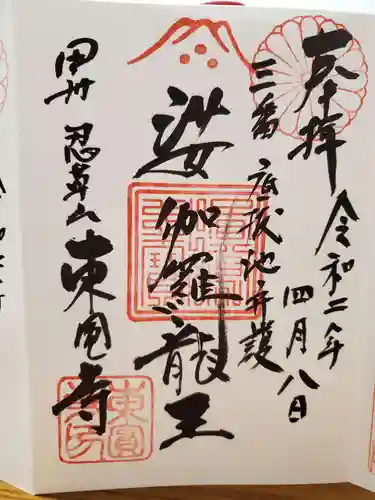 奉拝
令和二年
四月八日
三番 底抜池守護
娑伽羅龍王
甲州 忍草山 東圓寺
東圓